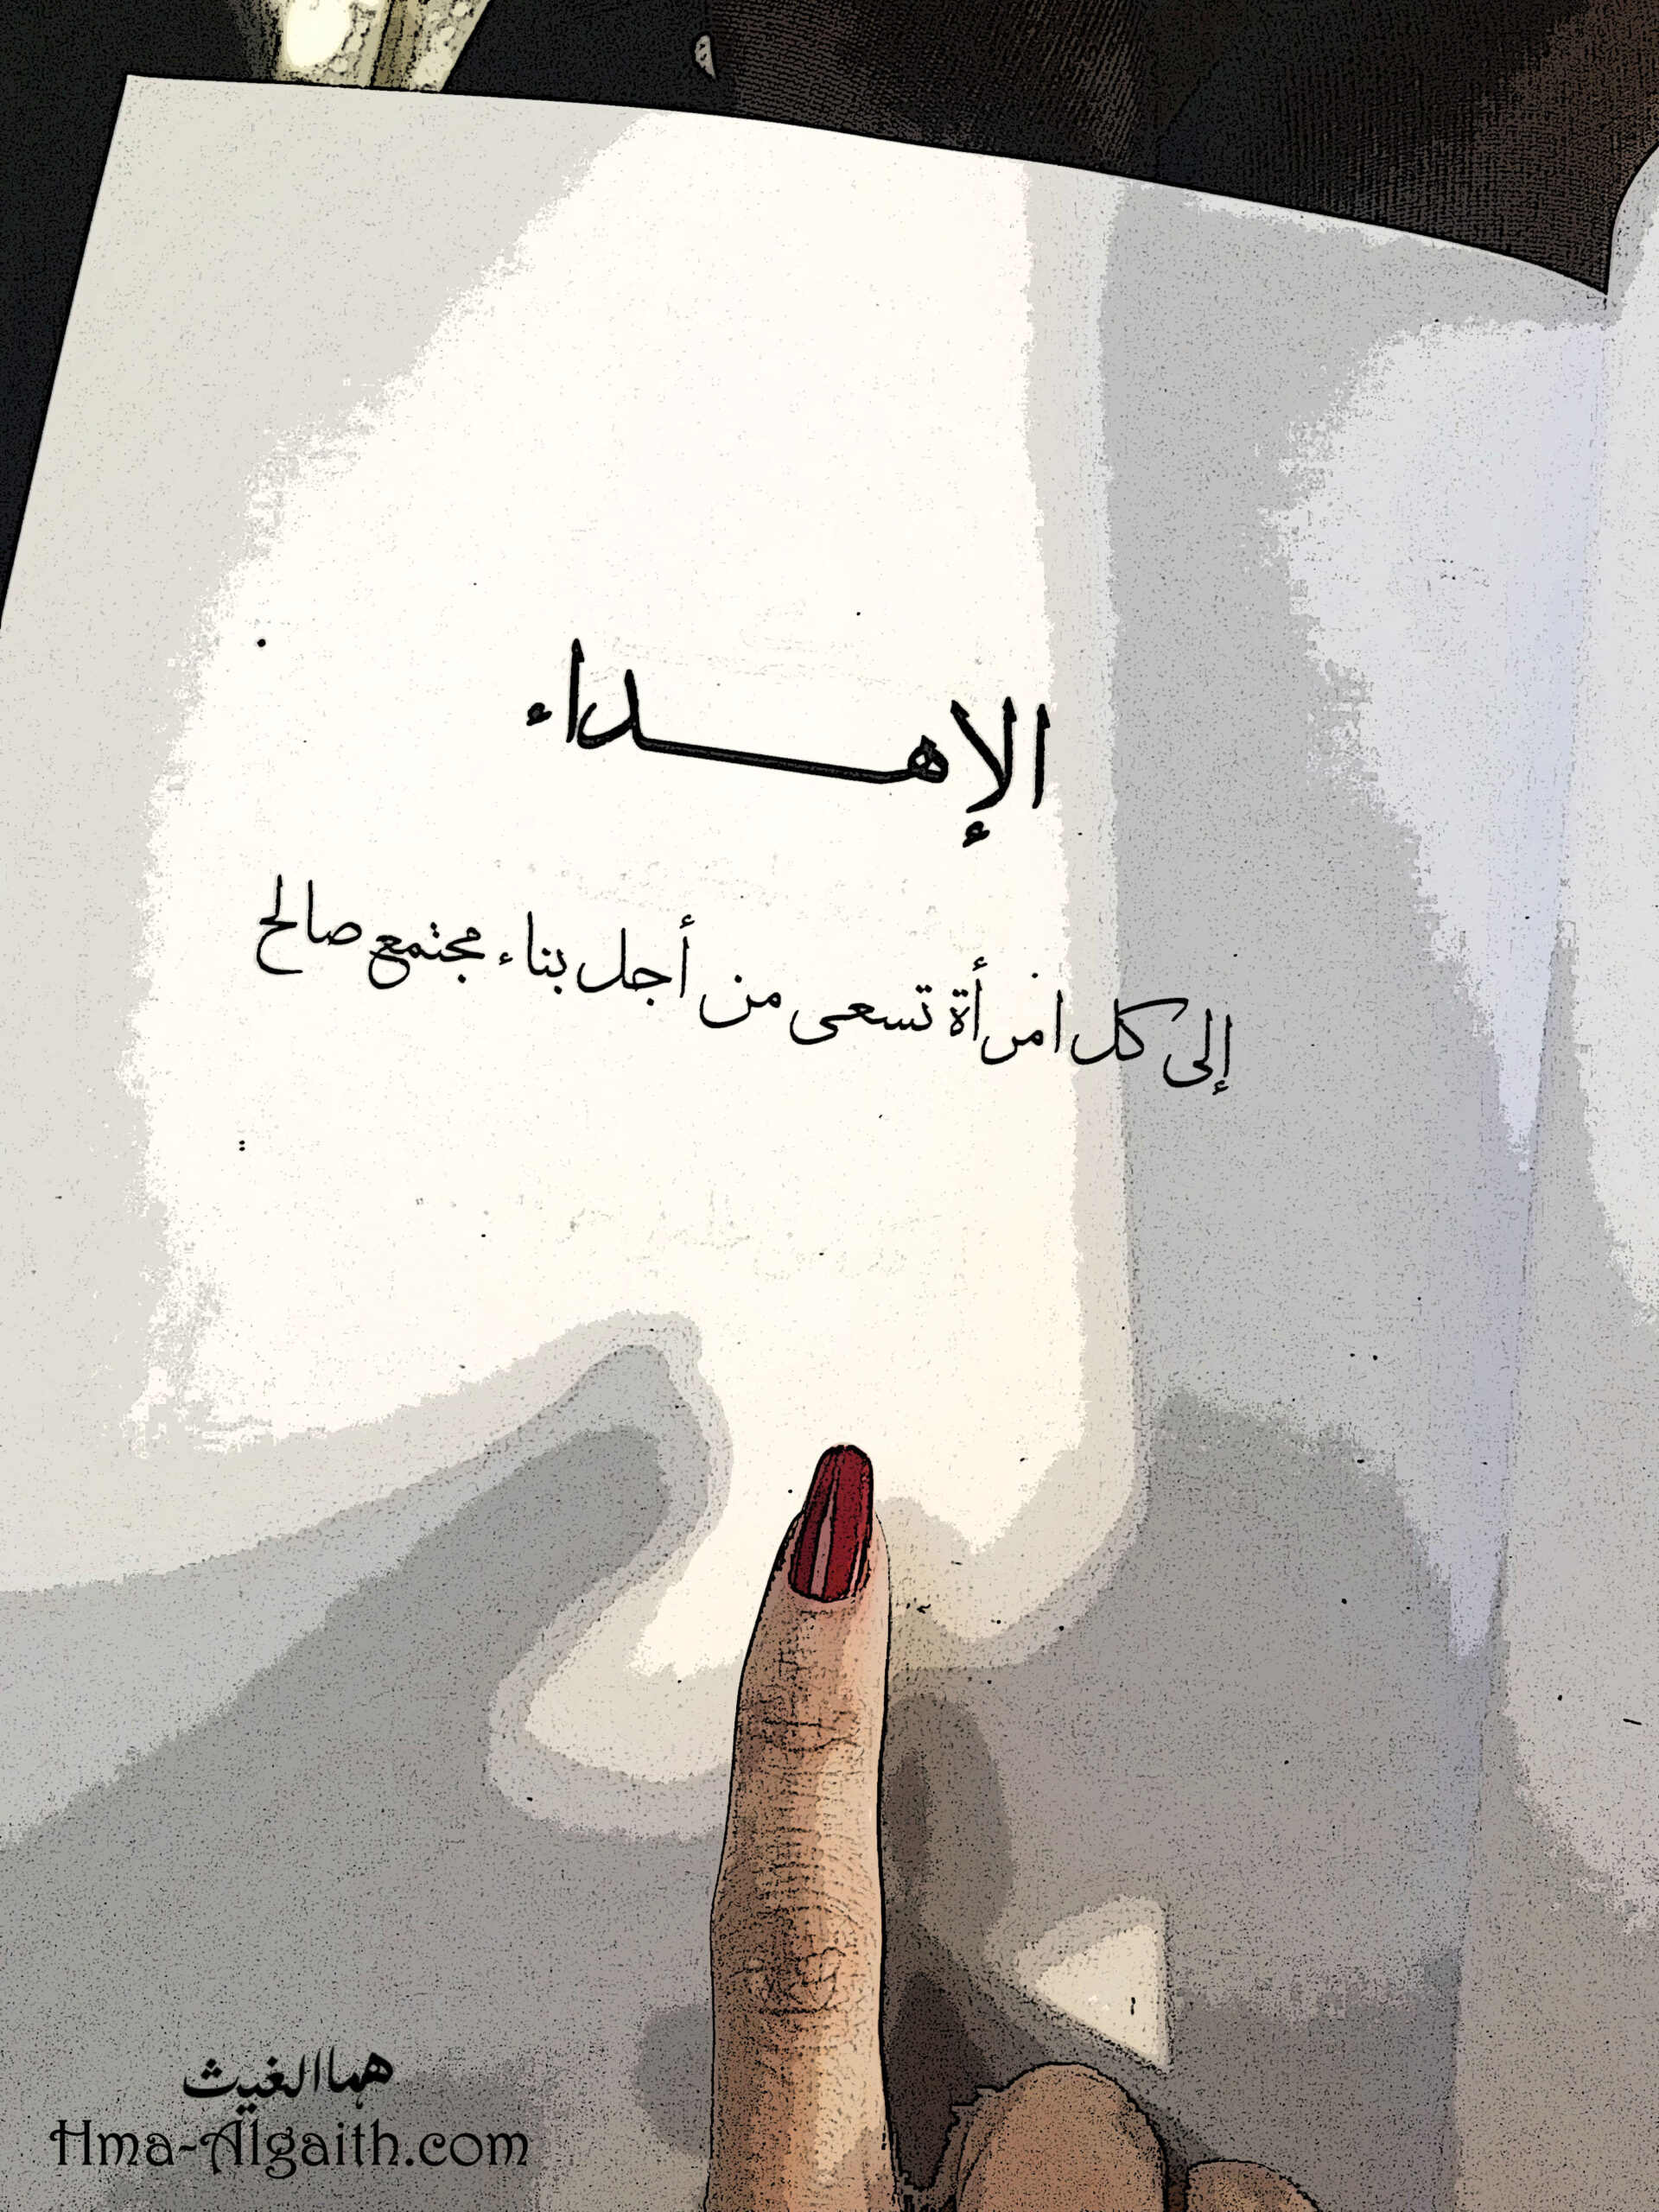 الإهداء
إلى كل امرأة تسعى من أجل بناء مجتمع صالح
هما الغيث
Hma-Algaith.com